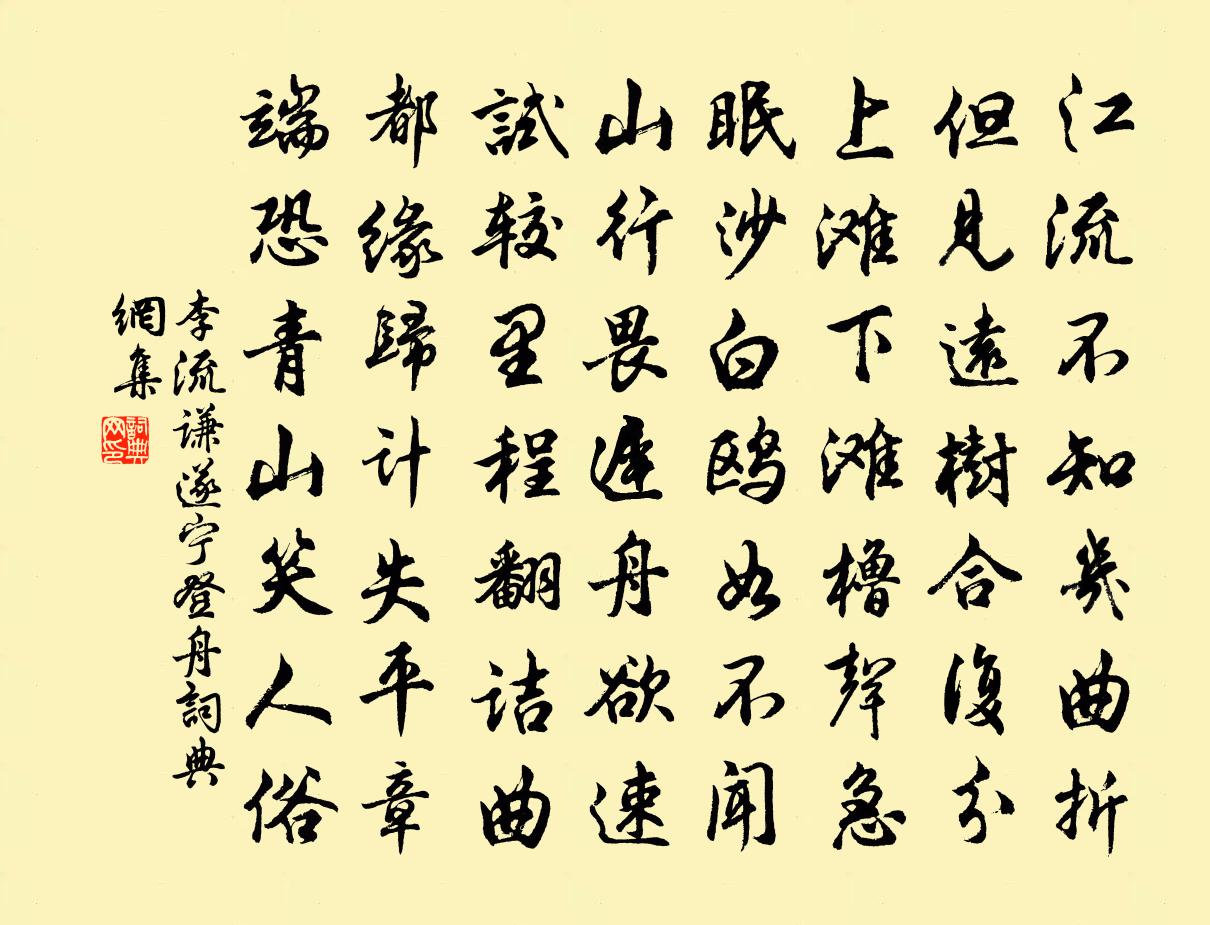 江流不知幾曲折
但見遠樹合復分
上滩下滩櫓聲急
眠沙白鸥如不聞
山行畏遲舟欲速
試較里程翻诘曲
都緣歸计失平章
端恐青山笑人俗
李流谦遂宁登舟詞典
網集
詞典
网印